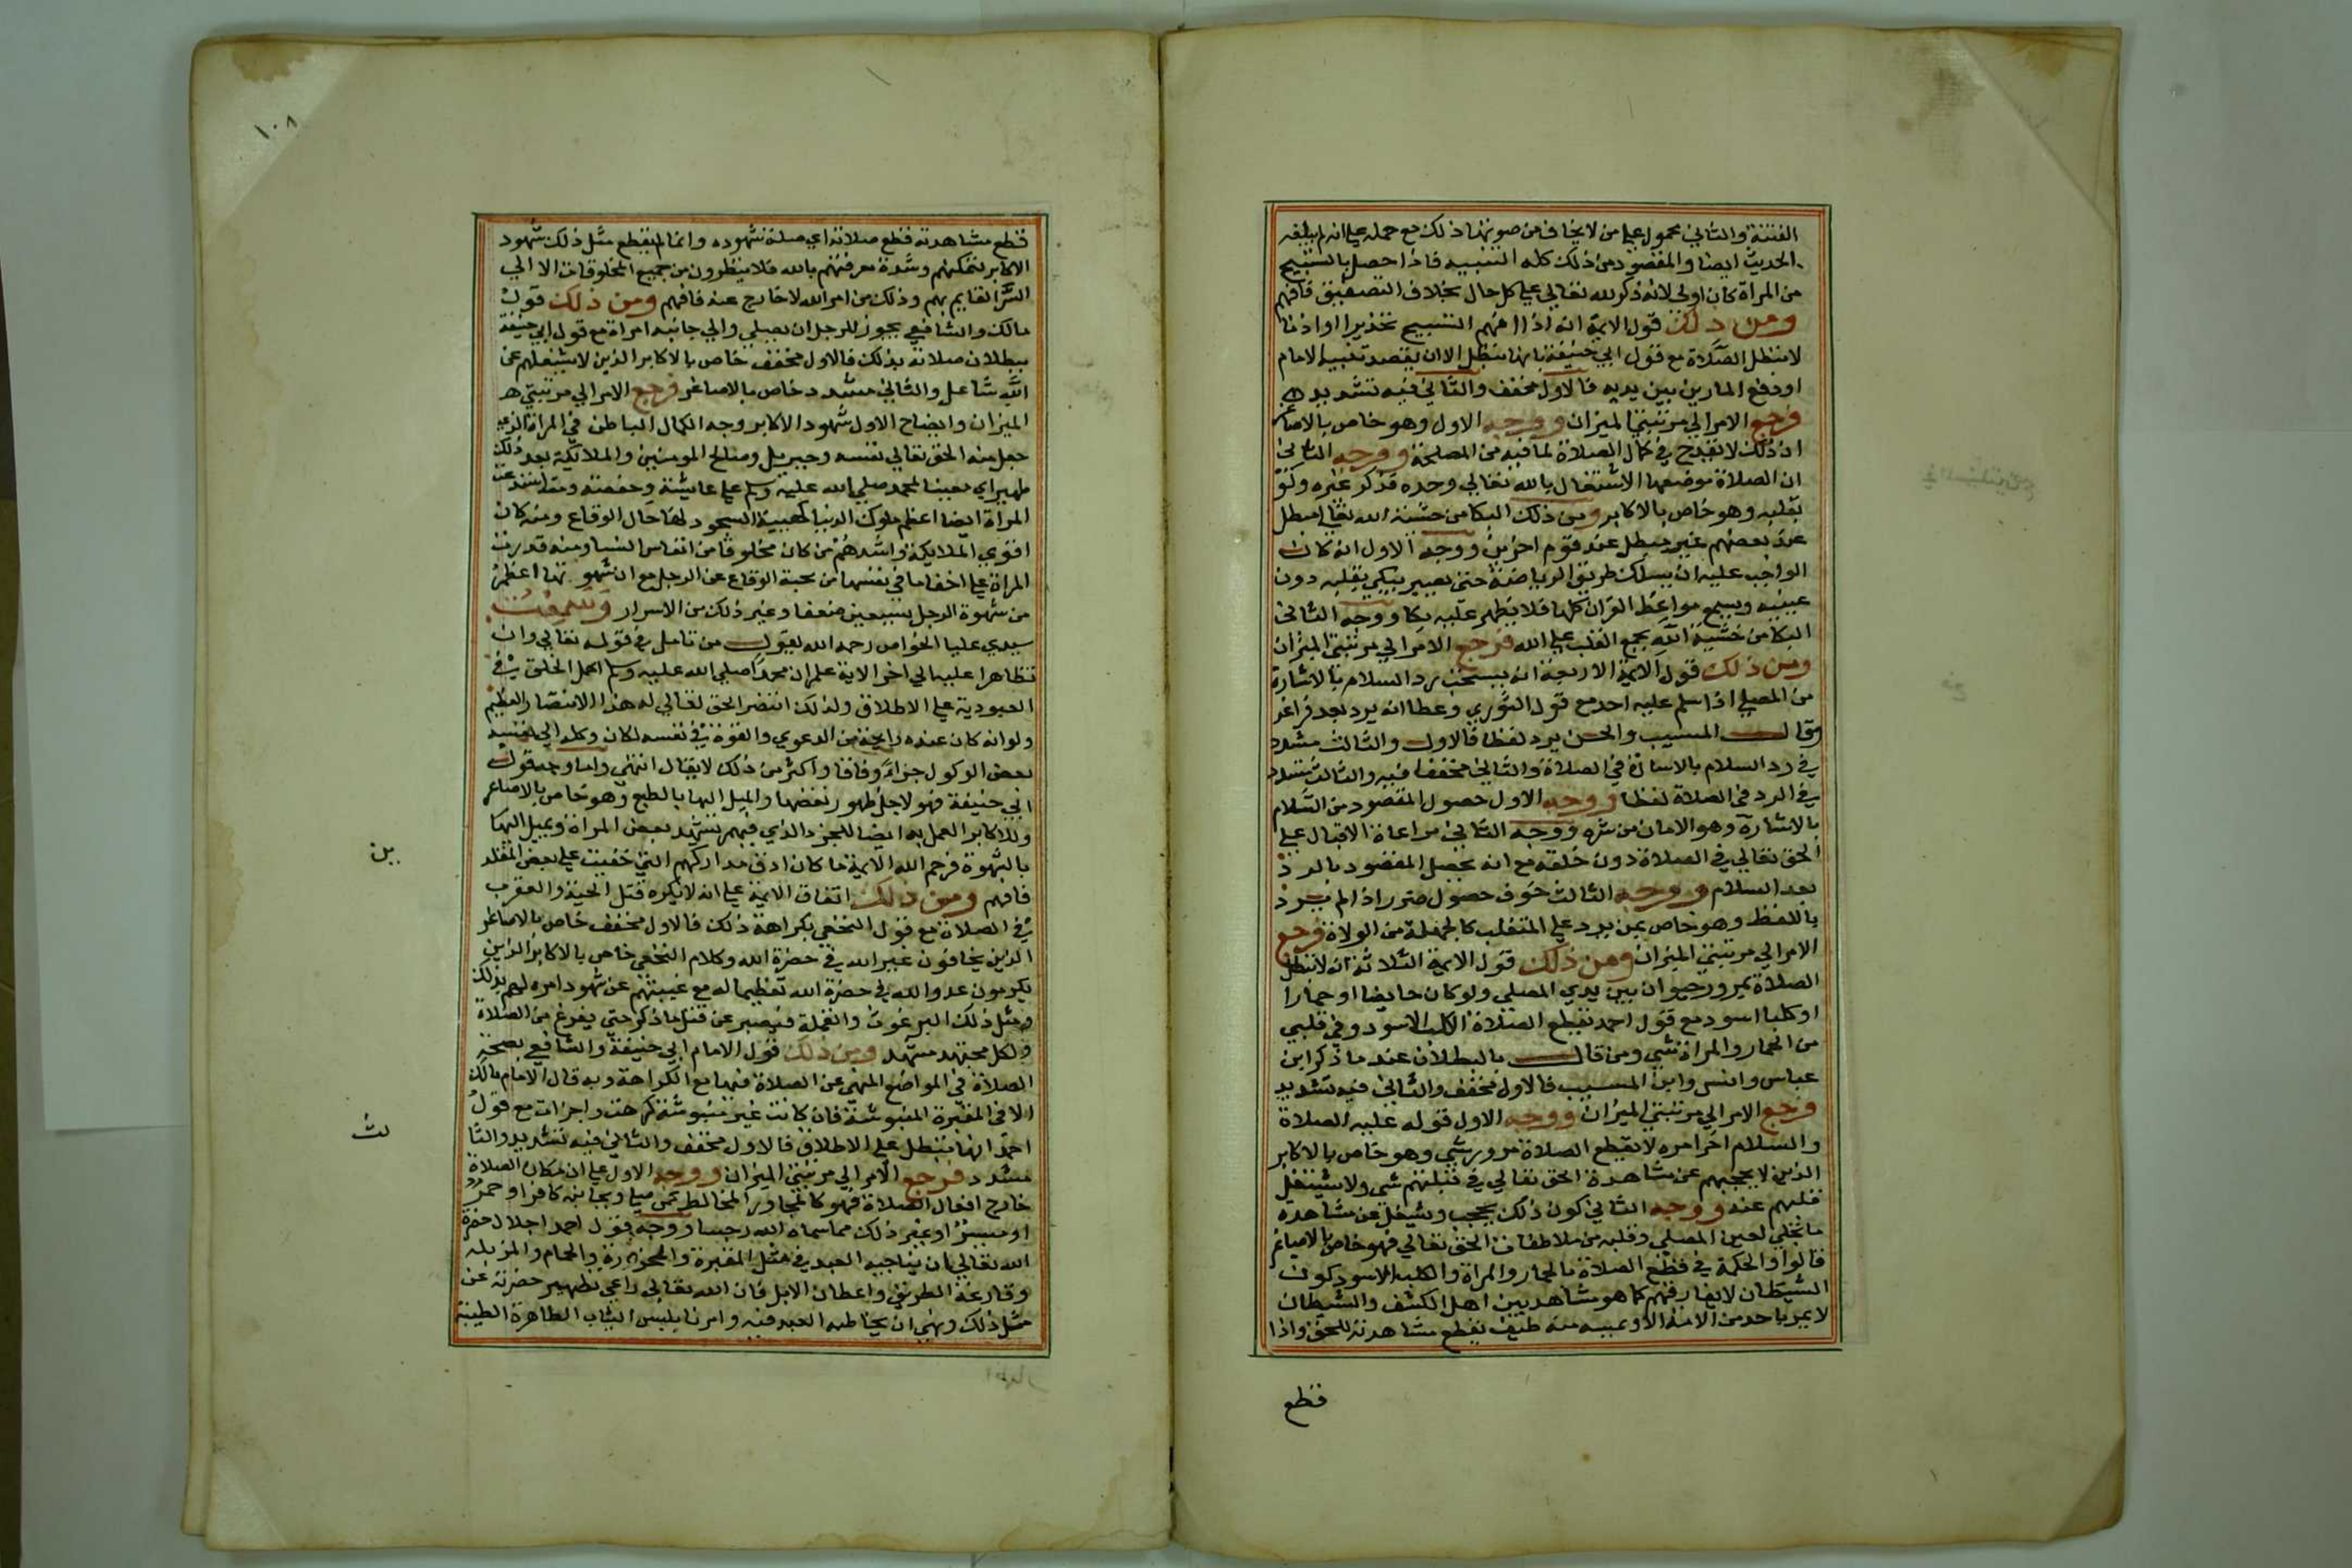 الفتنة والثاني محمول على من لا يخاف من صوتها ذلك مع حمله على انه لم يبلغه
الحديث ايضا والمقصود من ذلك كله التنبيه فاذا حصل بالتسبيح
من المراة كان اولى لانه ذكر لله تعالى على كل حال بخلاف التصفيق فافهم
ومن ذلك قول الايمة انه اذا افهم التسبيح تحذيرا او اذنا
لا تبطل الصلاة مع قول ابي حنيفة بانها تبطل الا ان يقصد تنبيه الامام
او دفع المارين بين يديه فالاول مخفف والثاني فيه تشديد
فرجع الامر الى مرتبتي الميزان ووجه الاول وهو خاص بالاصاغر
ان ذلك لا يقدح في كمال الصلاة لما فيه من المصلحة ووجه الثاني
ان الصلاة موضعها الاشتغال بالله تعالى وحده فذكر غيره ولو
بقلبه وهو خاص بالاكابر ومن ذلك البكا من خشية الله تعالى مبطل
عند بعضهم غير مبطل عند قوم اخرين ووجه الاول انه كان
الواجب عليه ان يسلك طريق الرياضة حتى يصير يبكي بقلبه دون
عينيه ويسمع مواعظ القران كلها فلا يظهر عليه بكا ووجه الثاني
البكا من خشية الله يجمع القلب على الله فرجع الامر الى مرتبتي الميزان
ومن ذلك قول الايمة الاربعة انه يستحب رد السلام بالاشارة
من المصلي اذا سلم عليه احد مع قول الثوري وعطا انه يرد بعد فراغه
وقال المسيب والحسن يرد لفظا فالاول والثالث مشدد
في رد السلام بالاشارة في الصلاة والثاني مخفف فيه والثالث مشدد
في الرد في الصلاة لفظا ووجه الاول حصول المقصود من السلام
بالاشارة وهو الامان من شره ووجه الثاني مراعاة الاقبال على
الحق تعالى في الصلاة دون خلقه مع انه يحصل المقصود بالرد
بعد السلام ووجه الثالث خوف حصول ضرر اذا لم يرد
باللفظ وهو خاص بمن يرد على المتغلب كالجهلة من الولاة فرجع
الامر الى مرتبتي الميزان ومن ذلك قول الايمة الثلاثة انه لا تبطل
الصلاة بمرور حيوان بين يدي المصلي ولو كان حايضا او حمارا
او كلبا اسود مع قول احمد يقطع الصلاة الكلب الاسود وفي قلبي
من الحمار والمراة شي ومن قال بالبطلان عند ما ذكر ابن
عباس وانس وابن المسيب فالاول مخفف والثاني فيه تشديد
فرجع الامر الى مرتبتي الميزان ووجه الاول قوله عليه الصلاة
والسلام اخر امره لا يقطع الصلاة مرور شي وهو خاص بالاكابر
الذين لا يحجبهم عن مشاهدة الحق تعالى في قبلتهم شي ولا يشتغل
قلبهم عنه ووجه الثاني كون ذلك يحجب ويشغل عن مشاهدة
ما تجلى لعين المصلي وقلبه من ملاطفات الحق تعالى فهو خاص بالاصاغر
قالوا والحكمة في قطع الصلاة بالحمار والمراة والكلب الاسود كون
الشيطان لا يفارقهم كما هو مشاهد بين اهل الكشف والشيطان
لا يمر باحد من الامة الا ويمسه منه طيف يقطع مشاهدته للحق واذا
قطع
١٠٨
قطع مشاهدته قطع صلاته اي صلة شهوده وانما لم يقطع مثل ذلك شهود
الاكابر لتمكنهم وشدة معرفتهم بالله فلا ينظرون من جميع المخلوقات الا الى
السر القايم بهم وذلك من امر الله لا خارج عنه فافهم ومن ذلك قول
مالك والشافعي يجوز للرجل ان يصلي والى جانبه امراة مع قول ابي حنيفة
ببطلان صلاته بذلك فالاول مخفف خاص بالاكابر الذين لا يشغلهم عن
الله شاغل والثاني مشدد خاص بالاصاغر فرجع الامر الى مرتبتي
الميزان وايضاح الاول شهود الاكابر وجه الكمال الباطن في المراة الذي
جعل منه الحق تعالى نفسه وجبريل وصالح المومنين والملايكة بعد ذلك
ظهير اي معينا لمحمد صلى الله عليه وسلم على عايشة وحفصة
المراة ايضا اعظم ملوك الدنيا كهيية السجود لها حال الوقاع ومنه كان
اقوى الملايكة واشدهم من كان مخلوقا من انفاس النسا ومنه قدرت
المراة على اخفا ما في نفسها من محبة الوقاع عن الرجل مع ان شهوتها اعظم
من شهوة الرجل بسبعين ضعفا وغير ذلك من الاسرار وسمعت
سيدي عليا الخواص رحمه الله يقول من تامل في قوله تعالى وان
تظاهرا عليه الى اخر الاية علم ان محمدا صلى الله عليه وسلم اكمل الخلق في
العبودية على الاطلاق ولذلك انتصر الحق تعالى له هذا الانتصار العظيم
ولو انه كان عنده رايحة من الدعوى والقوة في نفسه لكان وكله الى نفسه
بعض الوكول جزاء وفاقا واكثر من ذلك لا يقال انتهى واما وجه قول
ابي حنيفة فهو لاجل ظهور نقصها والميل اليها بالطبع وهو خاص بالاصاغر
وللاكابر العمل به ايضا للجزء الذي فيهم يشهد بعض المراة ويميل اليها
بالشهوة فرحم الله الايمة ما كان ادق مداركهم التي خفيت على بعض المقلد
ين
فافهم ومن ذلك اتفاق الايمة على انه لا يكره قتل الحية والعقرب
في الصلاة مع قول النخعي بكراهة ذلك فالاول مخفف خاص بالاصاغر
الذين يخافون غير الله في حضرة الله وكلام النخعي خاص بالاكابر الذين
يكرمون عدو الله في حضرة الله تعظيما له مع غيبتهم عن شهود امره لهم بذلك
ومثل ذلك البرغوث والقملة فيصبر عن قتل ما ذكر حتى يفرغ من الصلاة
ولكل مجتهد مشهد ومن ذلك قول الامام ابي حنيفة والشافعي بصحة
الصلاة في المواضع المنهي عن الصلاة فيها مع الكراهة وبه قال الامام مالك
الا في المقبرة المنبوشة فان كانت غير منبوشة كرهت واجزات مع قول
احمد انها تبطل على الاطلاق فالاول مخفف والثاني فيه تشديد والثا
لث
مشدد فرجع الامر الى مرتبتي الميزان ووجه الاول على ان مكان الصلاة
خارج افعال الصلاة فهو كالمجاور المخالط كمن صلى وبجانبه كافر او خمر
او ميسر او غير ذلك مما سماه الله رجسا ووجه قول احمد اجلال حضرة
الله تعالى ان يناجيه العبد في مثل المقبرة والمجزرة والحمام والمزبلة
وقارعة الطريق واعطان الابل فان الله تعالى راعى تطهير حضرته عن
مثل ذلك ونهى ان يخاطبه العبد فيه وامرنا بلبس الثياب الطاهرة الطيبة